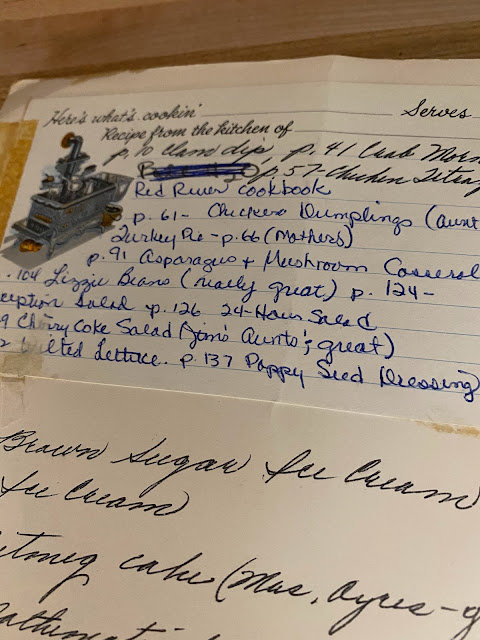 Here's what's cookin' Serves
Recipe from the kitchen of
p. 10 clam dip, p. 41 Crab Morn
p. 57- Chicken Tetraz
Red River cookbook
p. 61- Chicken Dumplings (aunt
Turkey Pie - p. 66 (Mothers)
p. 91 Asparagus + Mushroom Casserol
. 104 Lizzie Beans (really great) p. 124-
ception Salad p. 126 24-Hour Salad
9 Cherry Coke Salad (Jim's Aunt's; great)
Wilted Lettuce. p. 137 Poppy Seed Dressing
Brown Sugar Ice Cream
Ice Cream)
utmeg cake (Mrs. Ayres-g